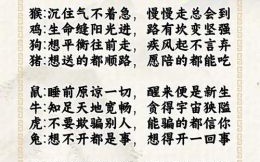 猴:沉住气不着急, 慢慢走总会到
鸡:生命缝阳光进, 路有坎变坚强
狗:想平衡往前走, 疾风起不言弃
猪:想送的都顺路, 愿陪的都能吃
鼠:睡前原谅一切, 醒来便是新生
牛:知足天地宽畅, 贪得宇宙狭隘
虎:不要欺骗别人, 能骗的都信你
兔:想不开都是事, 想得开一回事